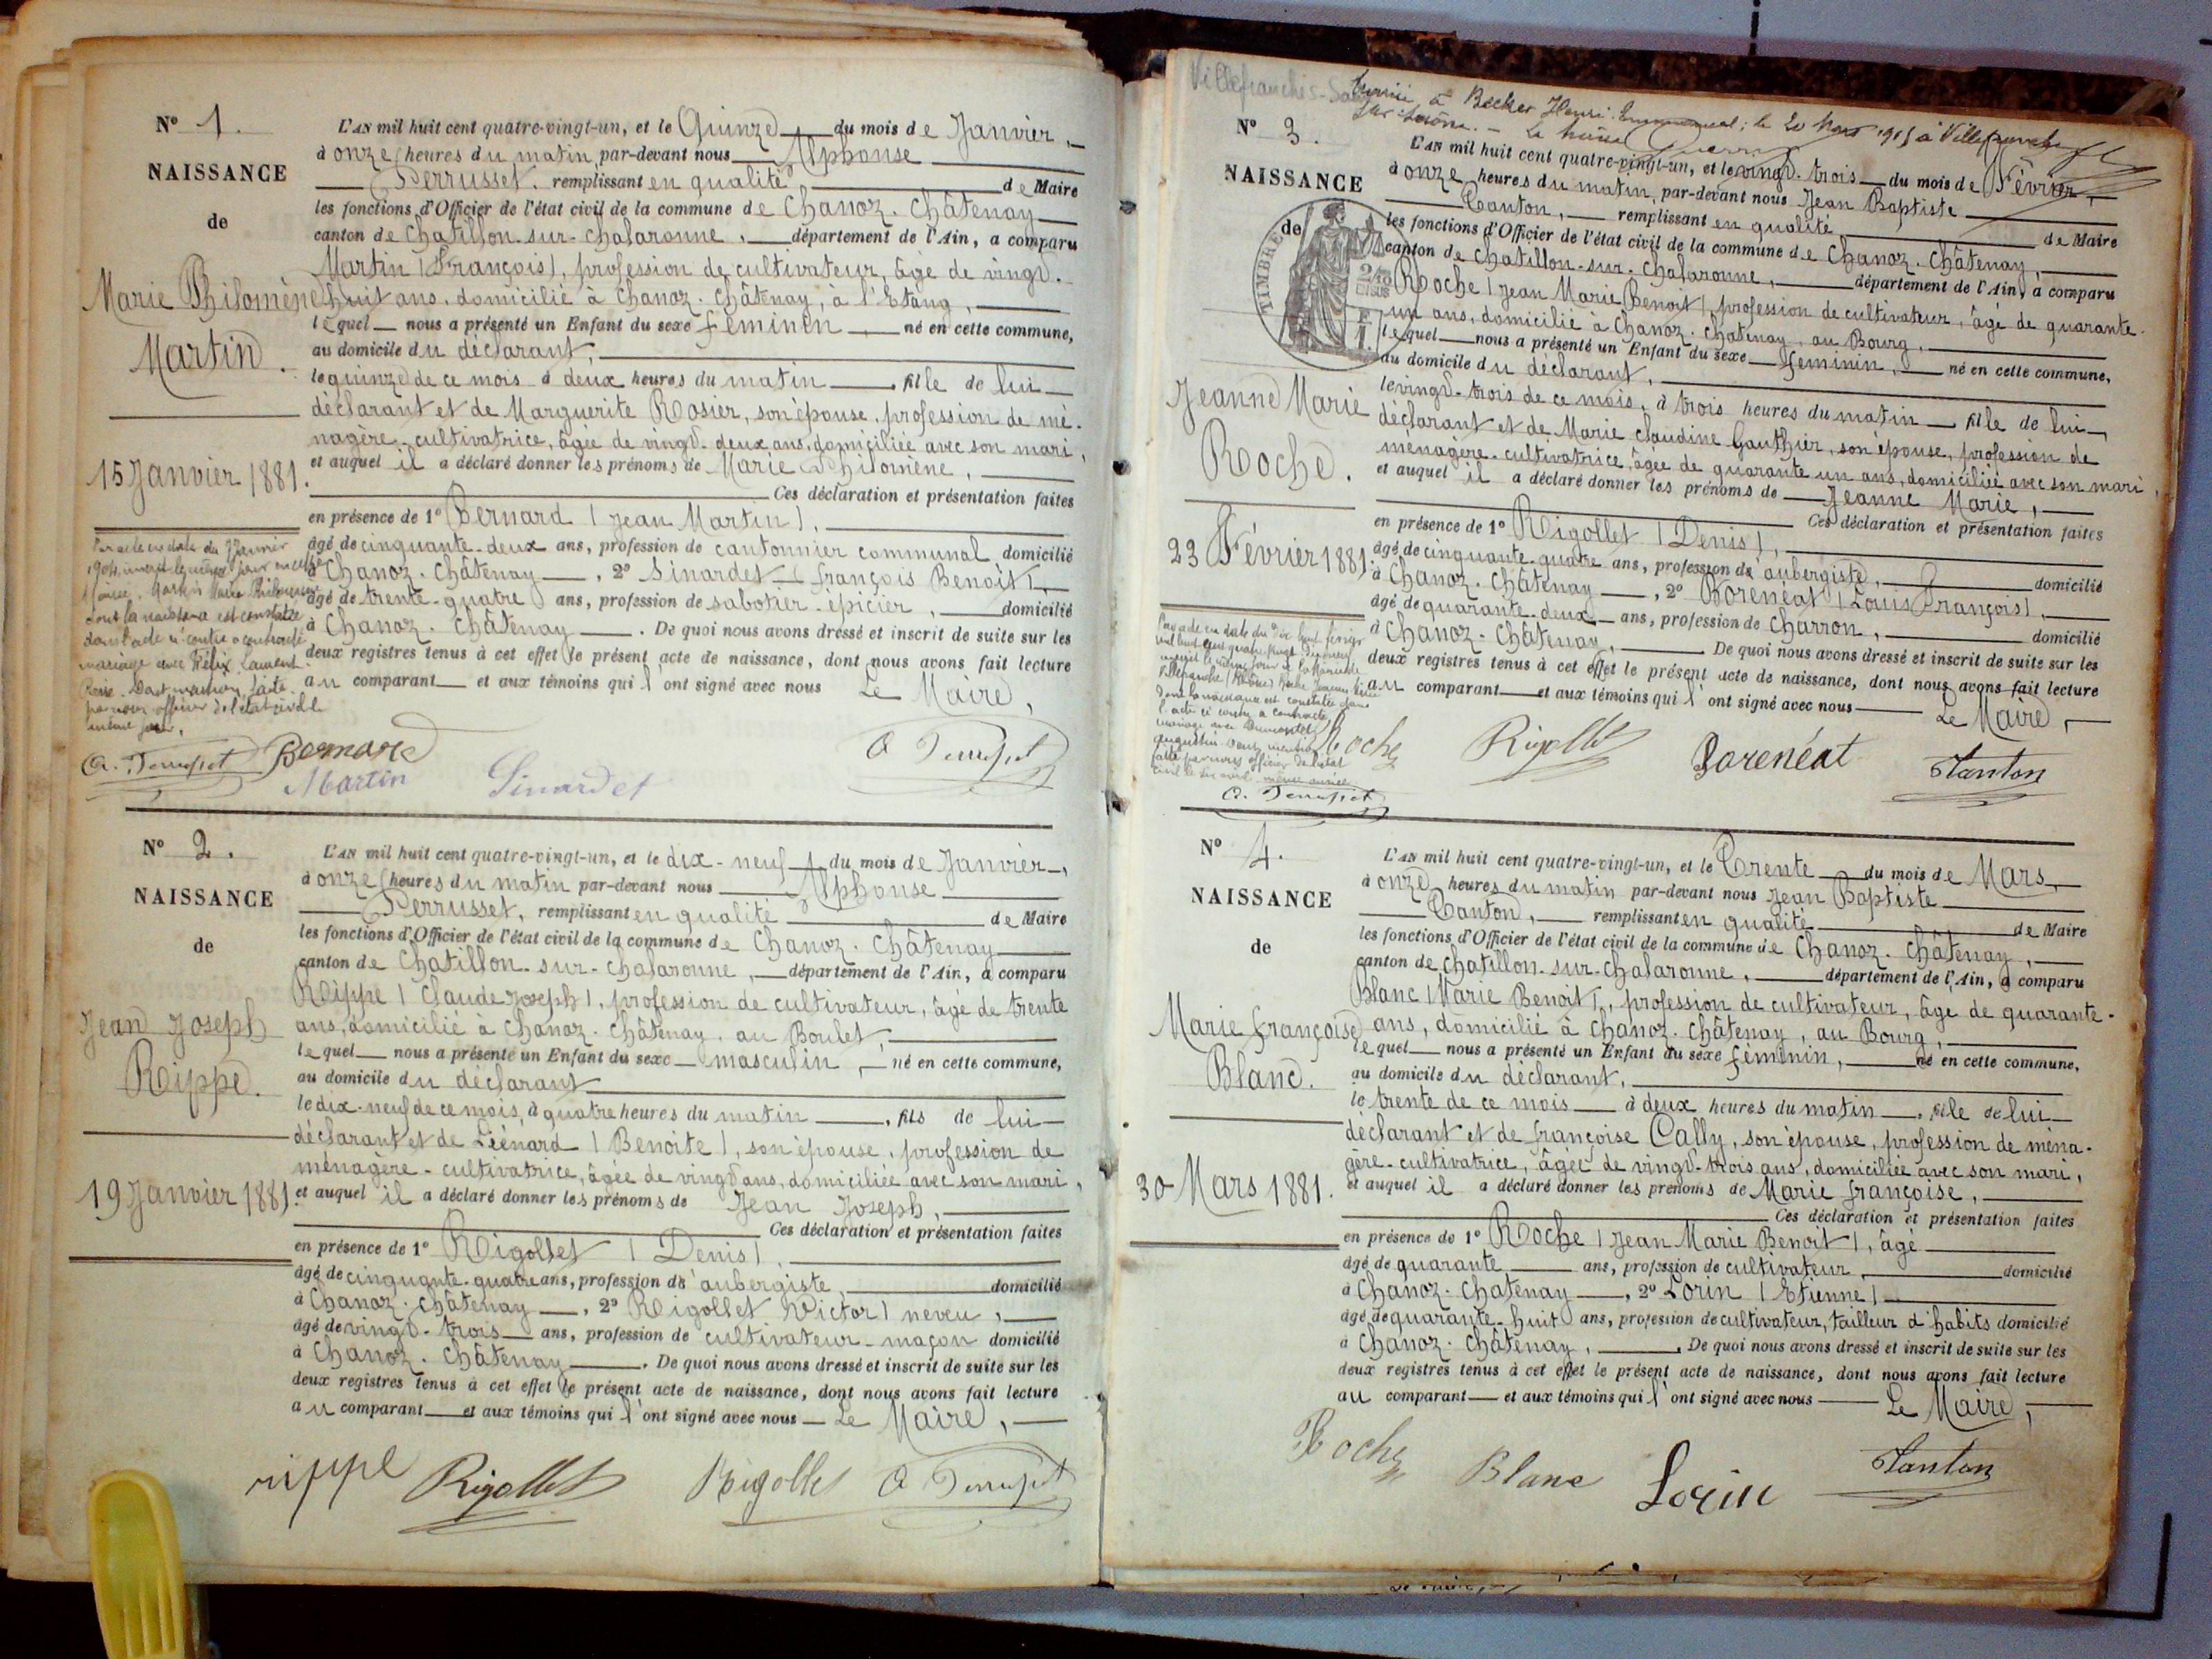 N° 1.
NAISSANCE
de
Marie Philomène
Martin.
15 Janvier 1881.
L'AN mil huit cent quatre-vingt-un, et le Quinze du mois de Janvier,
à onze heures du matin, par-devant nous Alphonse
Perrusset, remplissant en qualité de Maire
les fonctions d'Officier de l'état civil de la commune de Chanoz-Châtenay
canton de Chatillon-sur-Chalaronne, département de l'Ain, a comparu
Martin (François), profession de cultivateur, âgé de vingt-
huit ans, domicilié à Chanoz-Châtenay, à l'Etang,
lequel nous a présenté un Enfant du sexe féminin, né en cette commune,
au domicile du déclarant,
le quinze de ce mois à deux heures du matin, fille de lui
déclarant et de Marguerite Rosier, son épouse, profession de mé-
nagère-cultivatrice, âgée de vingt-deux ans, domiciliée avec son mari,
et auquel il a déclaré donner les prénoms de Marie Philomène,
Ces déclaration et présentation faites
en présence de 1° Bernard (Jean Martin),
âgé de cinquante-deux ans, profession de cantonnier communal domicilié
à Chanoz-Châtenay, 2° Sinardet (François Benoît),
âgé de trente-quatre ans, profession de sabotier-épicier, domicilié
à Chanoz-Châtenay. De quoi nous avons dressé et inscrit de suite sur les
deux registres tenus à cet effet le présent acte de naissance, dont nous avons fait lecture
au comparant et aux témoins qui l'ont signé avec nous Le Maire,
Par acte en date du Janvier
1904, inscrit le même jour en cette
Mairie, Martin Marie Philomène
dont la naissance est constatée
dans l'acte ci-contre a contracté
mariage avec Félix Laurent
Dont mention faite
par nous officier de l'état civil le
même jour,
A. Perrusset Bernard
Martin Sinardet A Perrusset
N° 2.
NAISSANCE
de
Jean Joseph
Rippe.
19 Janvier 1881.
L'AN mil huit cent quatre-vingt-un, et le dix-neuf du mois de Janvier,
à onze heures du matin par-devant nous Alphonse
Perrusset, remplissant en qualité de Maire
les fonctions d'Officier de l'état civil de la commune de Chanoz-Châtenay
canton de Chatillon-sur-Chalaronne, département de l'Ain, a comparu
Rippe (Claude Joseph), profession de cultivateur, âgé de trente
ans, domicilié à Chanoz-Châtenay, au Boulet,
lequel nous a présenté un Enfant du sexe masculin, né en cette commune,
au domicile du déclarant
le dix-neuf de ce mois, à quatre heures du matin, fils de lui
déclarant et de Liénard (Benoite), son épouse, profession de
ménagère-cultivatrice, âgée de vingt ans, domiciliée avec son mari,
et auquel il a déclaré donner les prénoms de Jean Joseph,
Ces déclaration et présentation faites
en présence de 1° Rigollet (Denis),
âgé de cinquante-quatre ans, profession d'aubergiste, domicilié
à Chanoz-Châtenay, 2° Rigollet (Victor) neveu,
âgé de vingt-trois ans, profession de cultivateur-maçon domicilié
à Chanoz-Châtenay. De quoi nous avons dressé et inscrit de suite sur les
deux registres tenus à cet effet le présent acte de naissance, dont nous avons fait lecture
au comparant et aux témoins qui l'ont signé avec nous Le Maire,
rippe Rigollet Rigollet A Perrusset
Villefranche-
à Becker Henri Emmanuel; le 20 Mars 1915 à Villefranche
sur Saône. - Le Maire
N° 3.
NAISSANCE
de
TIMBRE
Jeanne Marie
Roche.
23 Février 1881.
L'AN mil huit cent quatre-vingt-un, et le vingt-trois du mois de Février,
à onze heures du matin, par-devant nous Jean Baptiste
Tanton, remplissant en qualité de Maire
les fonctions d'Officier de l'état civil de la commune de Chanoz-Châtenay,
canton de Chatillon-sur-Chalaronne, département de l'Ain, a comparu
Roche (Jean Marie Benoit), profession de cultivateur, âgé de quarante-
un ans, domicilié à Chanoz-Châtenay, au Bourg,
lequel nous a présenté un Enfant du sexe féminin, né en cette commune,
au domicile du déclarant,
le vingt-trois de ce mois, à trois heures du matin fille de lui
déclarant et de Marie Claudine Gauthier, son épouse, profession de
ménagère-cultivatrice, âgée de quarante un ans, domiciliée avec son mari,
et auquel il a déclaré donner les prénoms de Jeanne Marie,
Ces déclaration et présentation faites
en présence de 1° Rigollet (Denis),
âgé de cinquante-quatre ans, profession d'aubergiste, domicilié
à Chanoz-Châtenay, 2° Borenéat (Louis François),
âgé de quarante-deux ans, profession de charron, domicilié
à Chanoz-Châtenay, De quoi nous avons dressé et inscrit de suite sur les
deux registres tenus à cet effet le présent acte de naissance, dont nous avons fait lecture
au comparant et aux témoins qui l'ont signé avec nous Le Maire,
Par acte en date du dix huit février
mil huit cent quatre vingt
inscrit le même jour à la Mairie de
Villefranche (Rhône) Roche Jeanne Marie
dont la naissance est constatée dans
l'acte ci contre a contracté
mariage avec Dumontet
Augustin. Dont mention
faite par nous officier de l'état
civil le même année.
A. Perrusset
Roche Rigollet Borenéat Tanton
N° 4.
NAISSANCE
de
Marie Françoise
Blanc.
30 Mars 1881.
L'AN mil huit cent quatre-vingt-un, et le Trente du mois de Mars,
à onze heures du matin par-devant nous Jean Baptiste
Tanton, remplissant en qualité de Maire
les fonctions d'Officier de l'état civil de la commune de Chanoz-Châtenay,
canton de Chatillon-sur-Chalaronne, département de l'Ain, a comparu
Blanc (Marie Benoit), profession de cultivateur, âgé de quarante-
ans, domicilié à Chanoz-Châtenay, au Bourg,
lequel nous a présenté un Enfant du sexe féminin, né en cette commune,
au domicile du déclarant,
le trente de ce mois à deux heures du matin, fille de lui
déclarant et de Françoise Cally, son épouse, profession de ména-
gère-cultivatrice, âgée de vingt-trois ans, domiciliée avec son mari,
et auquel il a déclaré donner les prénoms de Marie Françoise,
Ces déclaration et présentation faites
en présence de 1° Roche (Jean Marie Benoit), âgé
âgé de quarante ans, profession de cultivateur, domicilié
à Chanoz-Chatenay, 2° Lorin (Etienne)
âgé de quarante-huit ans, profession de cultivateur, tailleur d'habits domicilié
à Chanoz-Châtenay, De quoi nous avons dressé et inscrit de suite sur les
deux registres tenus à cet effet le présent acte de naissance, dont nous avons fait lecture
au comparant et aux témoins qui l'ont signé avec nous Le Maire,
Roche Blanc Lorin Tanton